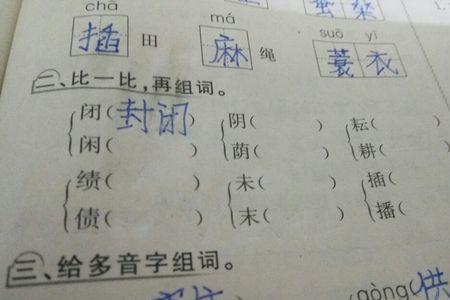 chā má suō yī
插 田 麻 绳 蓑 衣
二、比一比，再组词。
闭( 封闭 ) 阴( ) 耘(
闲( ) 荫( ) 耕(
绩( ) 未( ) 插(
债( ) 末( ) 播(
三、给多音字组词。
gòng( 供